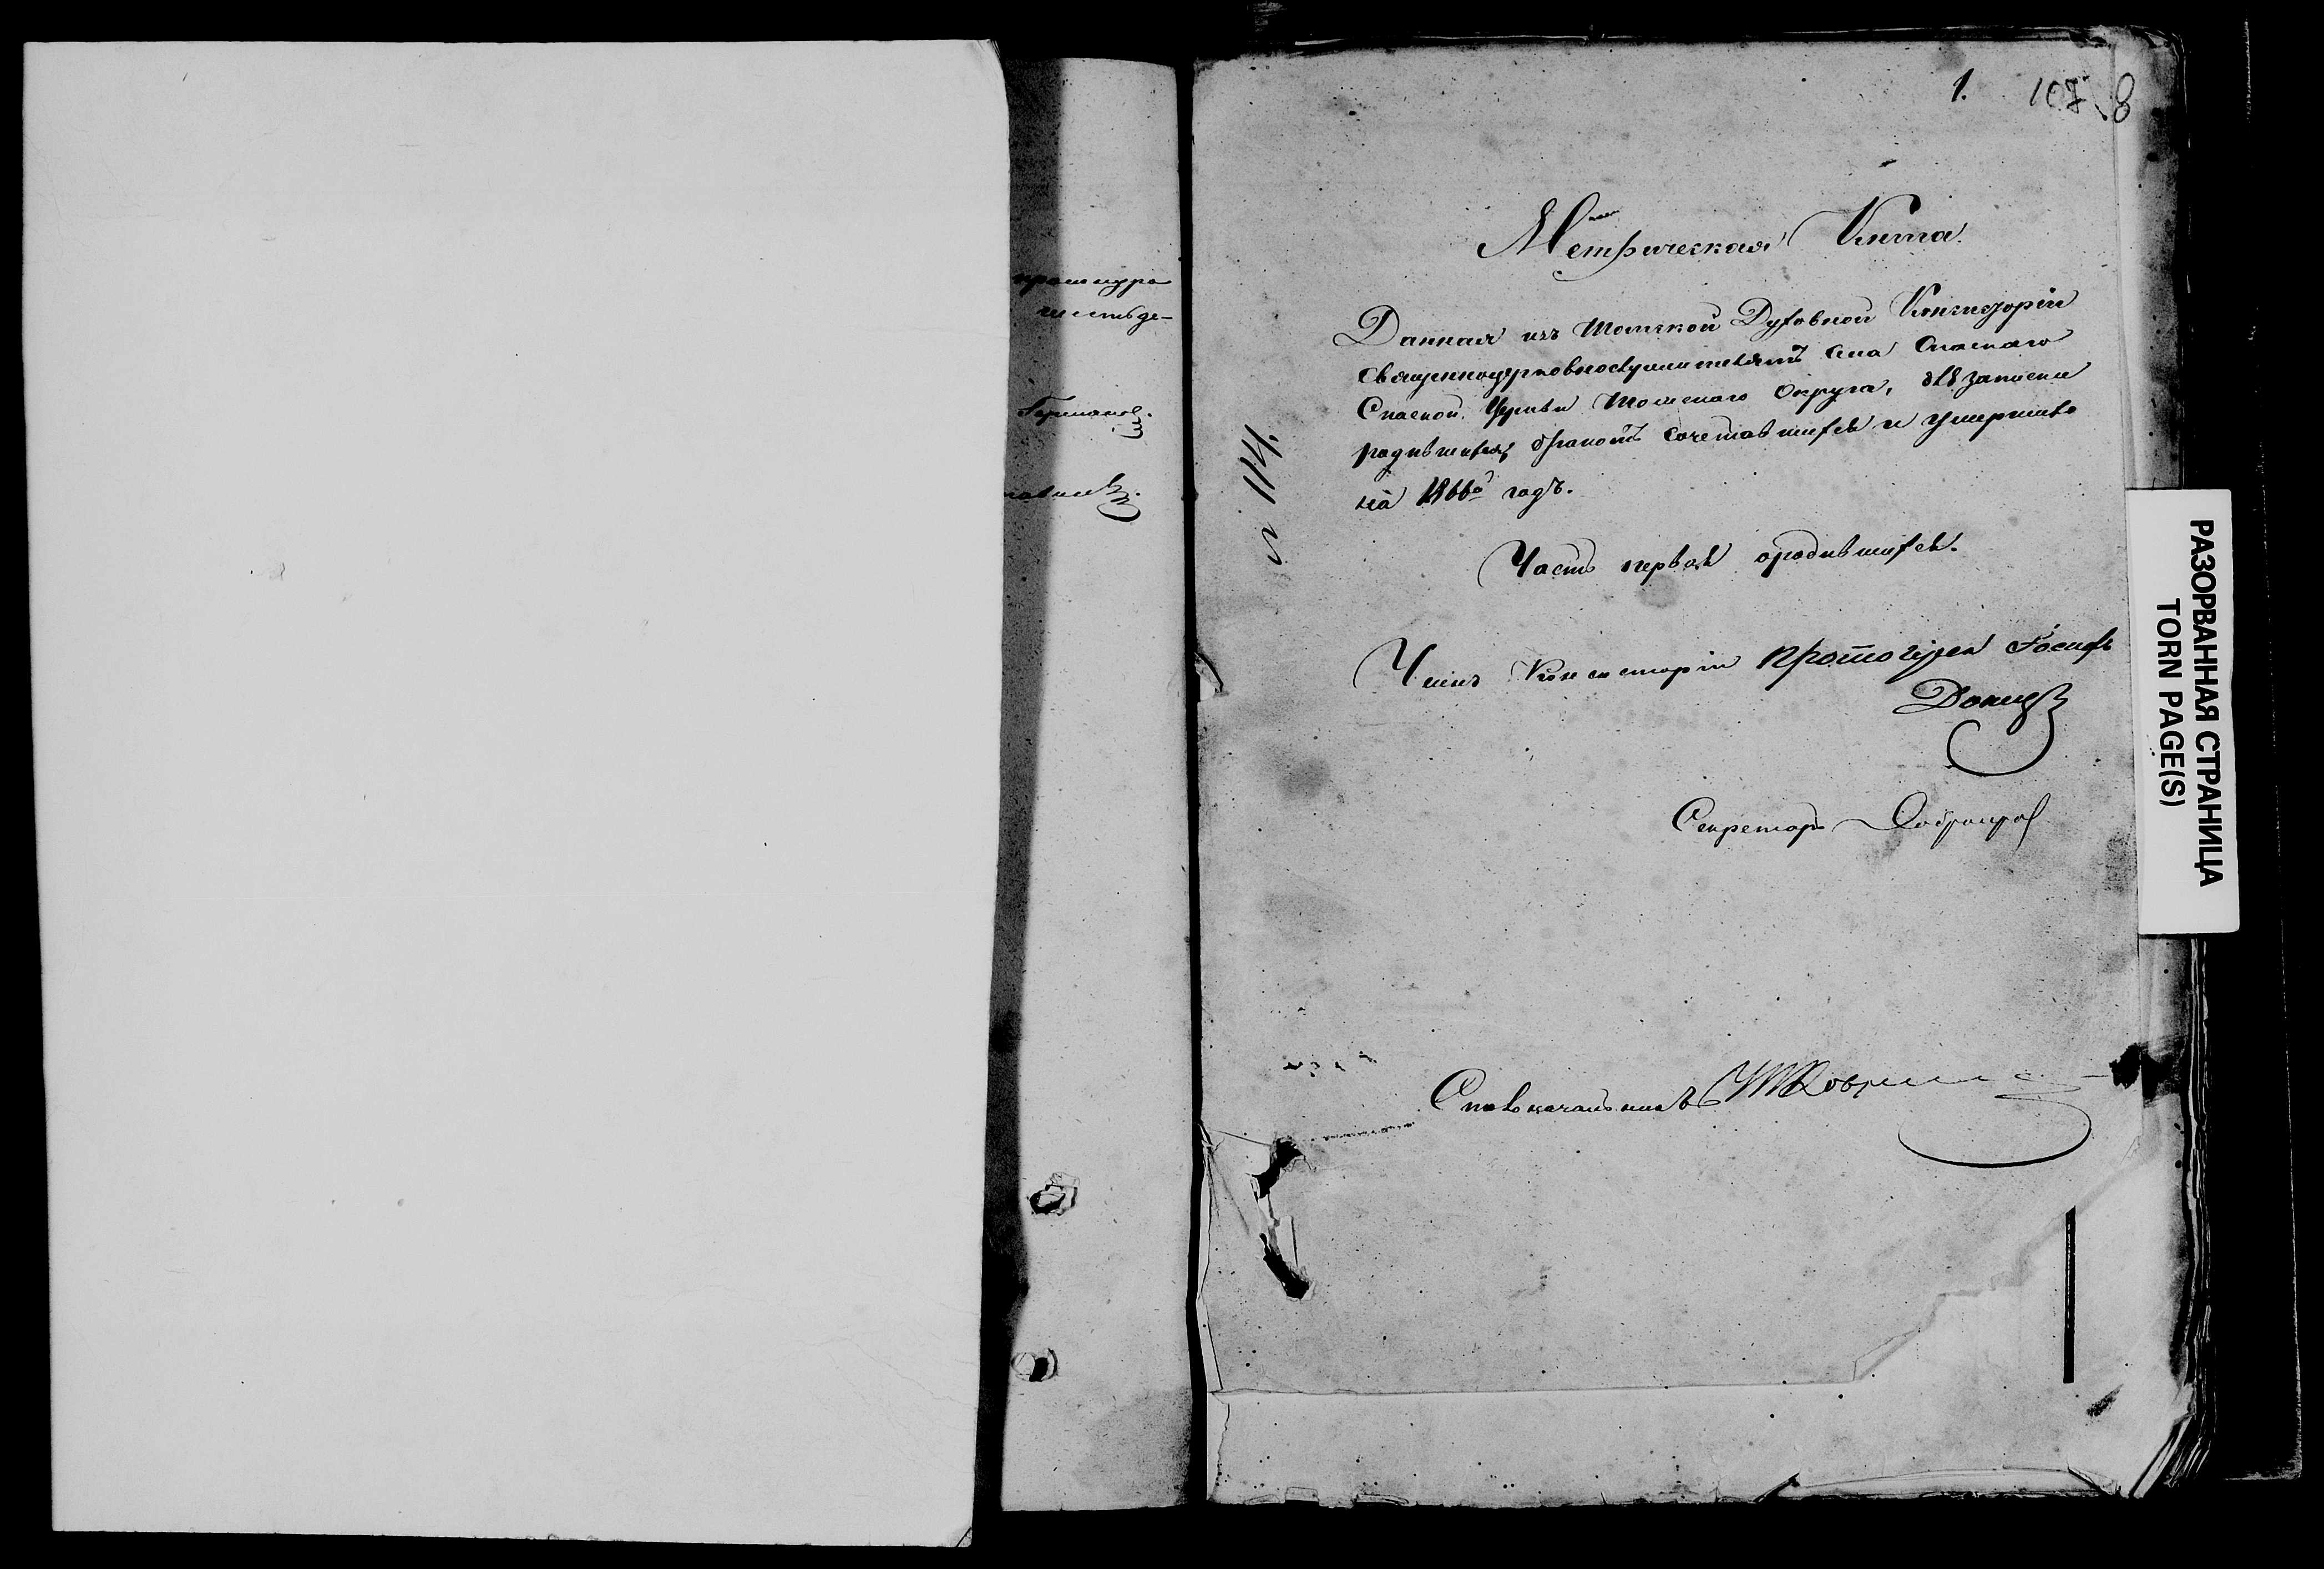 прошнуро
шестьде-
Германов
1. 107 8
Метрическая Книга.
Данная изъ Томской Духовной Консисторіи
Священноцерковнослужителямъ села Спаскаго
Спаской Церкви Томскаго Округа, для записки
родившихся, бракомъ сочетавшихся и умершихъ
на 1866й годъ.
Часть первая о родившихся.
Членъ Консисторіи Протоіерей Іосифъ
Секретарь
Столоначальникъ
РАЗОРВАННАЯ СТРАНИЦА
TORN PAGE(S)